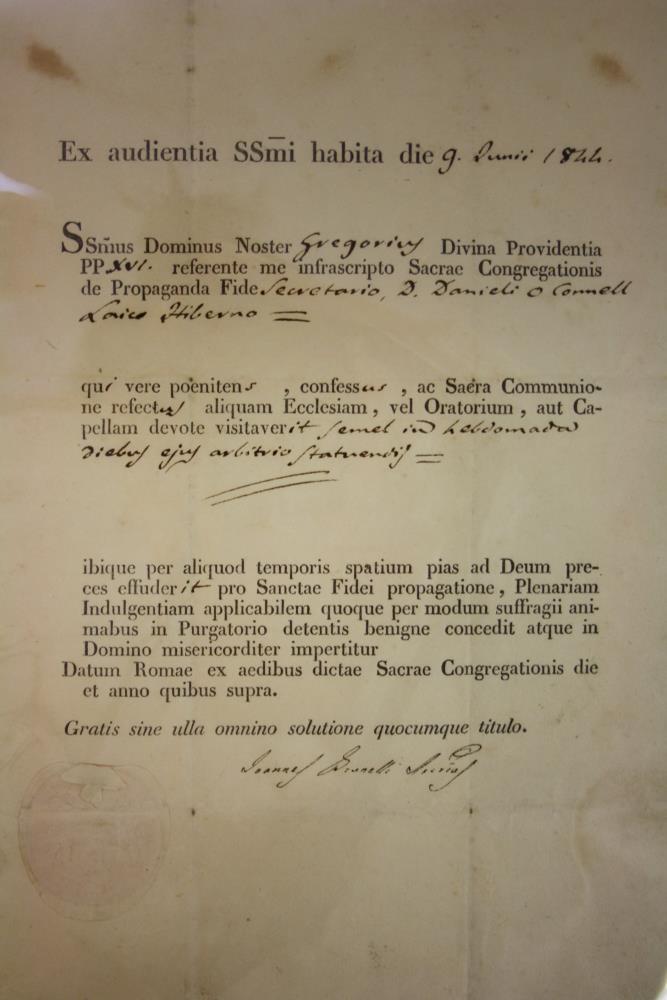 Ex audientia SSm̄i habita die 9. Junii 1844.
SSm̄us Dominus Noster Gregorius Divina Providentia
PP. XVI. referente me infrascripto Sacrae Congregationis
de Propaganda Fide Secretario, D. Danieli O Connell
Laico Hiberno =
qui vere poenitens , confessus , ac Sacra Communio-
ne refectus aliquam Ecclesiam , vel Oratorium , aut Ca-
pellam devote visitaverit semel in hebdomada
diebus ejus arbitrio statuendis =
ibique per aliquod temporis spatium pias ad Deum pre-
ces effuderit pro Sanctae Fidei propagatione , Plenariam
Indulgentiam applicabilem quoque per modum suffragii ani-
mabus in Purgatorio detentis benigne concedit atque in
Domino misericorditer impertitur
Datum Romae ex aedibus dictae Sacrae Congregationis die
et anno quibus supra.
Gratis sine ulla omnino solutione quocumque titulo.
Joannes Brunelli